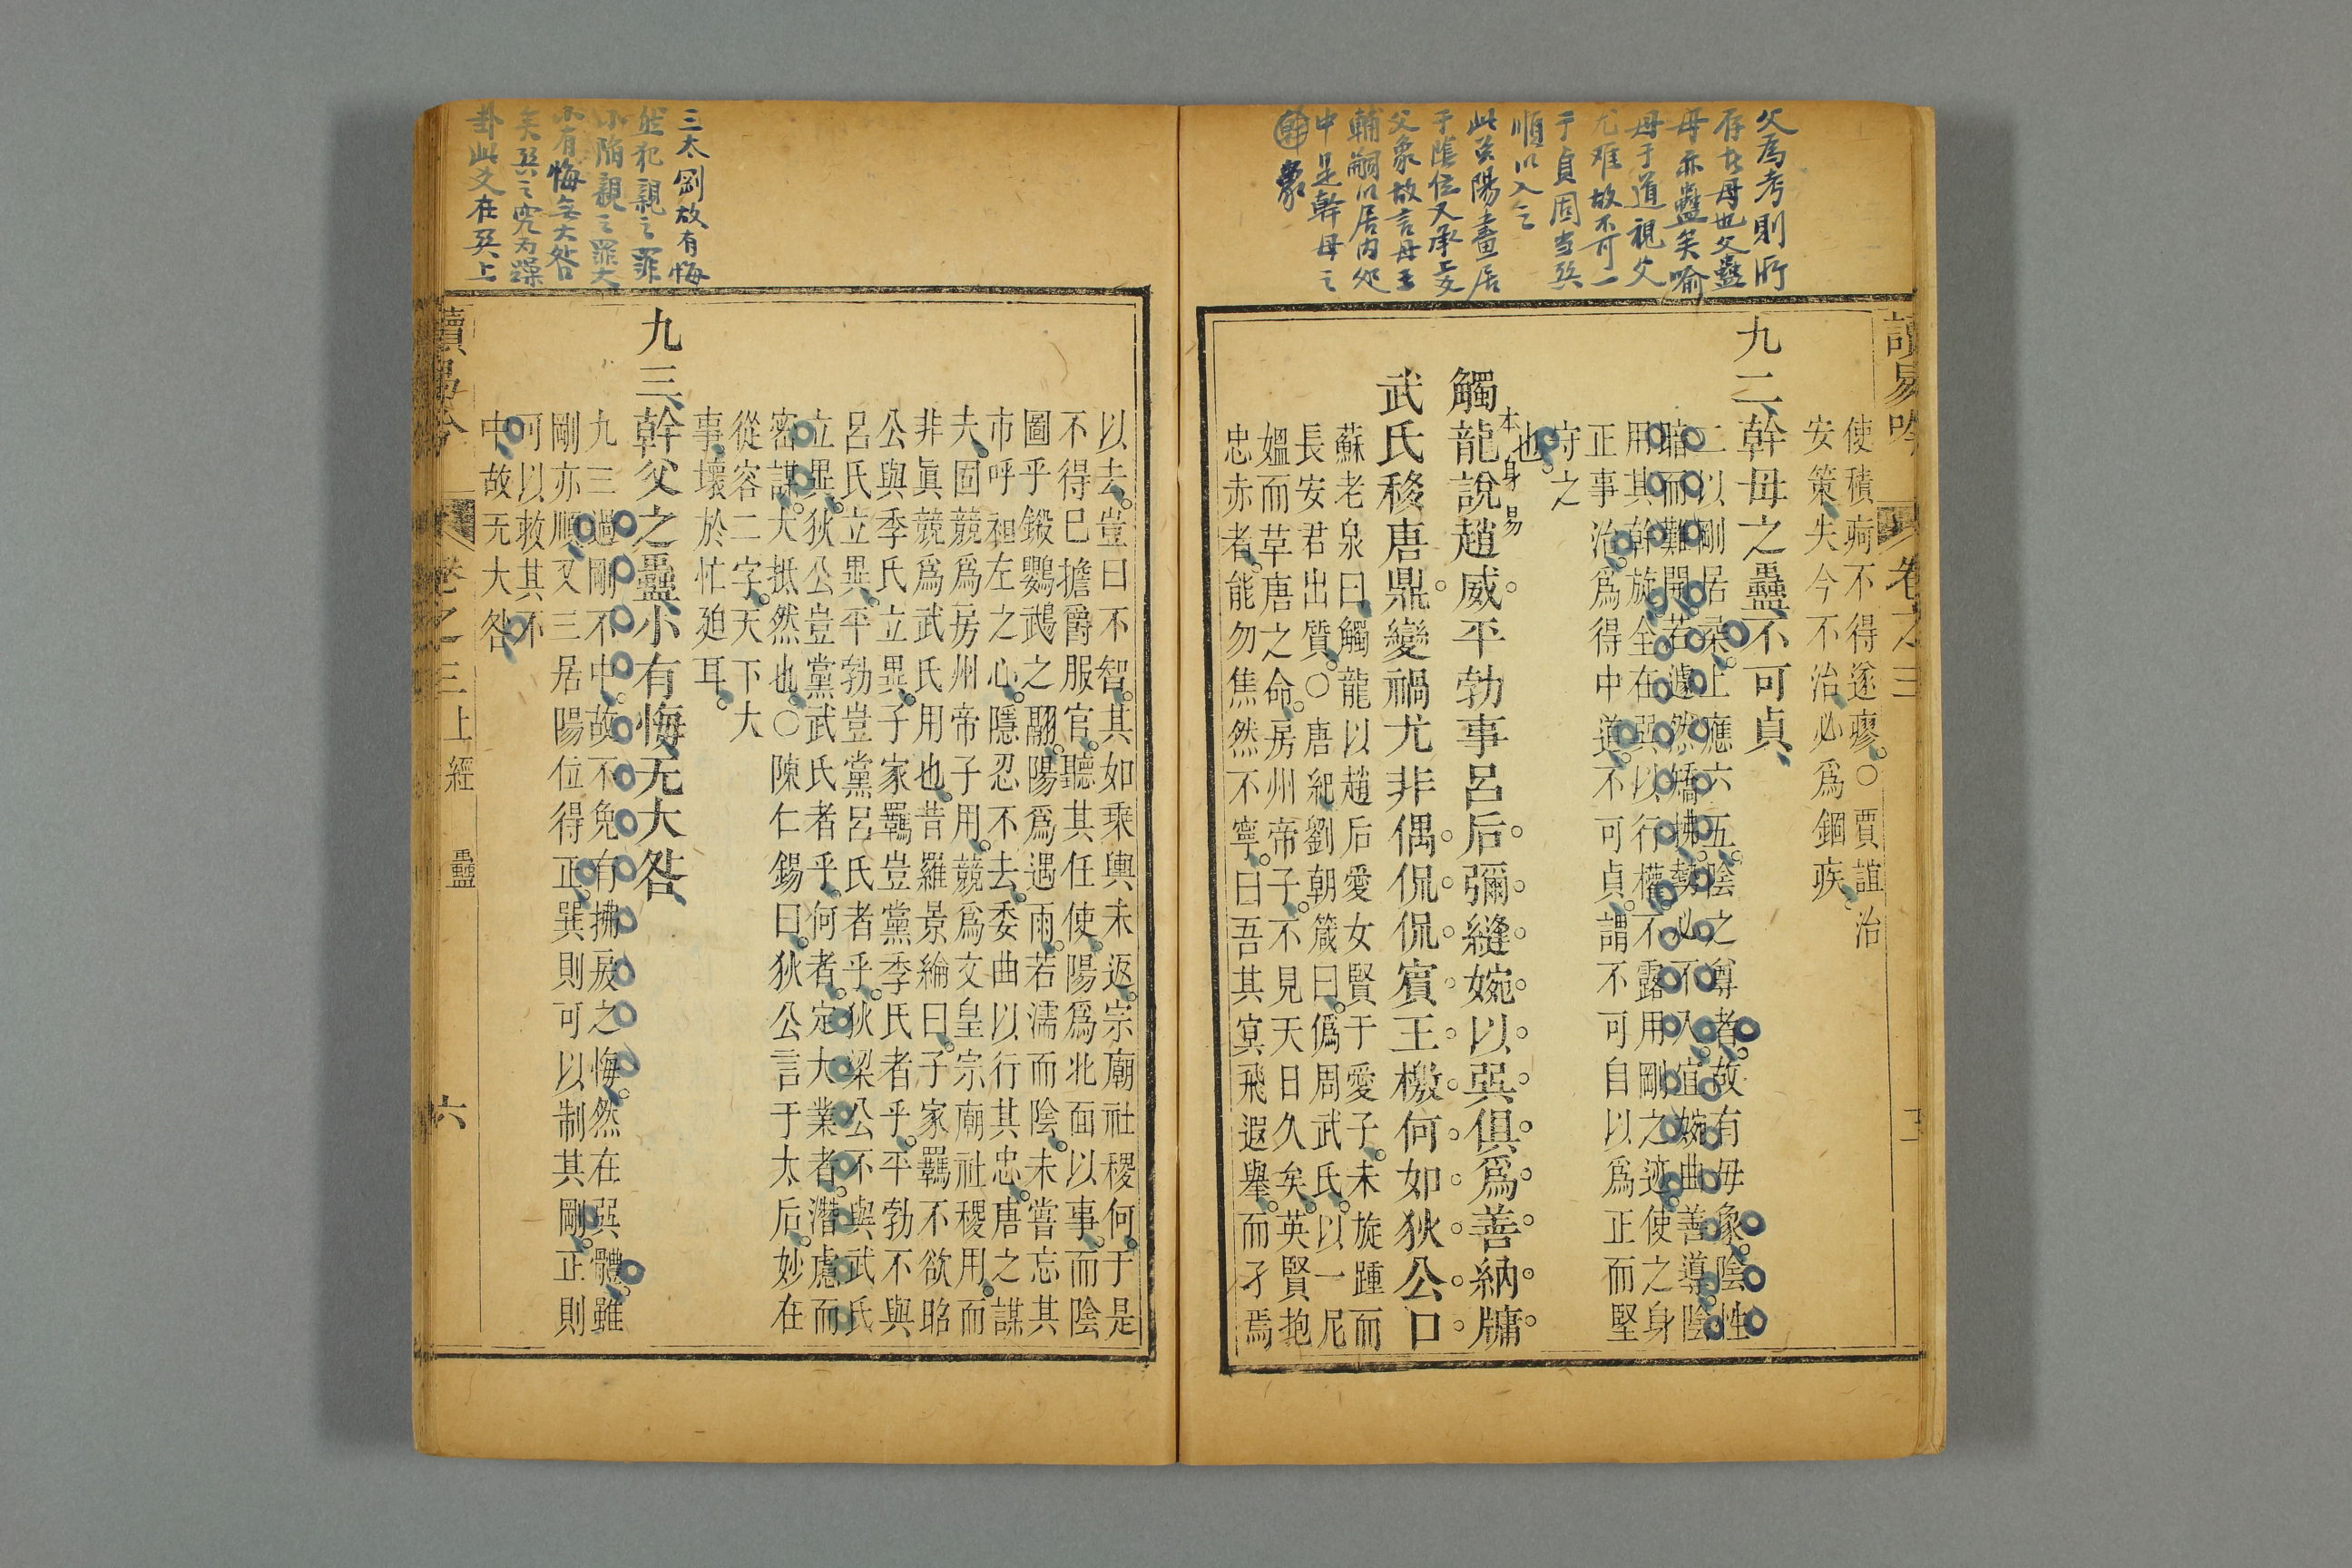 父為考則所
存在母也父蠱
母亦蠱矣喻
母于道視父
尤难故不可一
于貞固当巽
順以入之
此爻陽畫居
于陰位又承五
父象故言母主
輔嗣以居内処
中是幹母之
幹象
讀易吟
卷之三
使積疴不得遂瘳○賈誼治
安策失今不治必爲錮疾
九二幹母之蠱不可貞
二以剛居柔上應六五陰之尊者故有母象陰性
暗而難開若遽然矯拂勢必不入宜婉曲善導陰
用其幹旋全在巽以行權不露用剛之迹使之身
正事治爲得中道不可貞謂不可自以爲正而堅
守之
也
本身易
觸龍說趙威平勃事呂后彌縫婉以巽俱爲善納牖
武氏移唐鼎變禍尤非偶侃侃賓王檄何如狄公口
蘇老泉曰觸龍以趙后愛女賢于愛子未旋踵而
長安君出質○唐紀劉朝箴曰僞周武氏以一尼
媼而草唐之命房州帝子不見天日久矣英賢抱
忠赤者能勿焦然不寧曰吾其冥飛遐舉而孑焉
三太剛故有悔
然犯親之罪
小陷親之罪大
小有悔無大咎
矣巽之究为躁
卦此爻在巽上
以去豈曰不智其如乗輿未返宗廟社稷何于是
不得巳擔爵服官聽其任使陽爲北面以事而陰
圖乎鍛鸚鵡之翮陽爲遇雨若濡而陰未嘗忘其
市呼袒左之心隱忍不去委曲以行其忠唐之謀
夫固競爲房州帝子用競爲文皇宗廟社稷用而
非眞競爲武氏用也昔羅景綸曰子家羈不欲昭
公與季氏立異子家羈豈黨季氏者乎平勃不與
呂氏立異平勃豈黨呂氏者乎狄梁公不與武氏
立異狄公豈黨武氏者乎何者定大業者潛慮而
密謀大抵然也○陳仁錫曰狄公言于太后妙在
從容二字天下大
事壞於忙廹耳
九三幹父之蠱小有悔无大咎
九三過剛不中故不免有拂戾之悔然在巽體雖
剛亦順又三居陽位得正巽則可以制其剛正則
可以救其不
中故无大咎
讀易吟
卷之三 上經 蠱
六